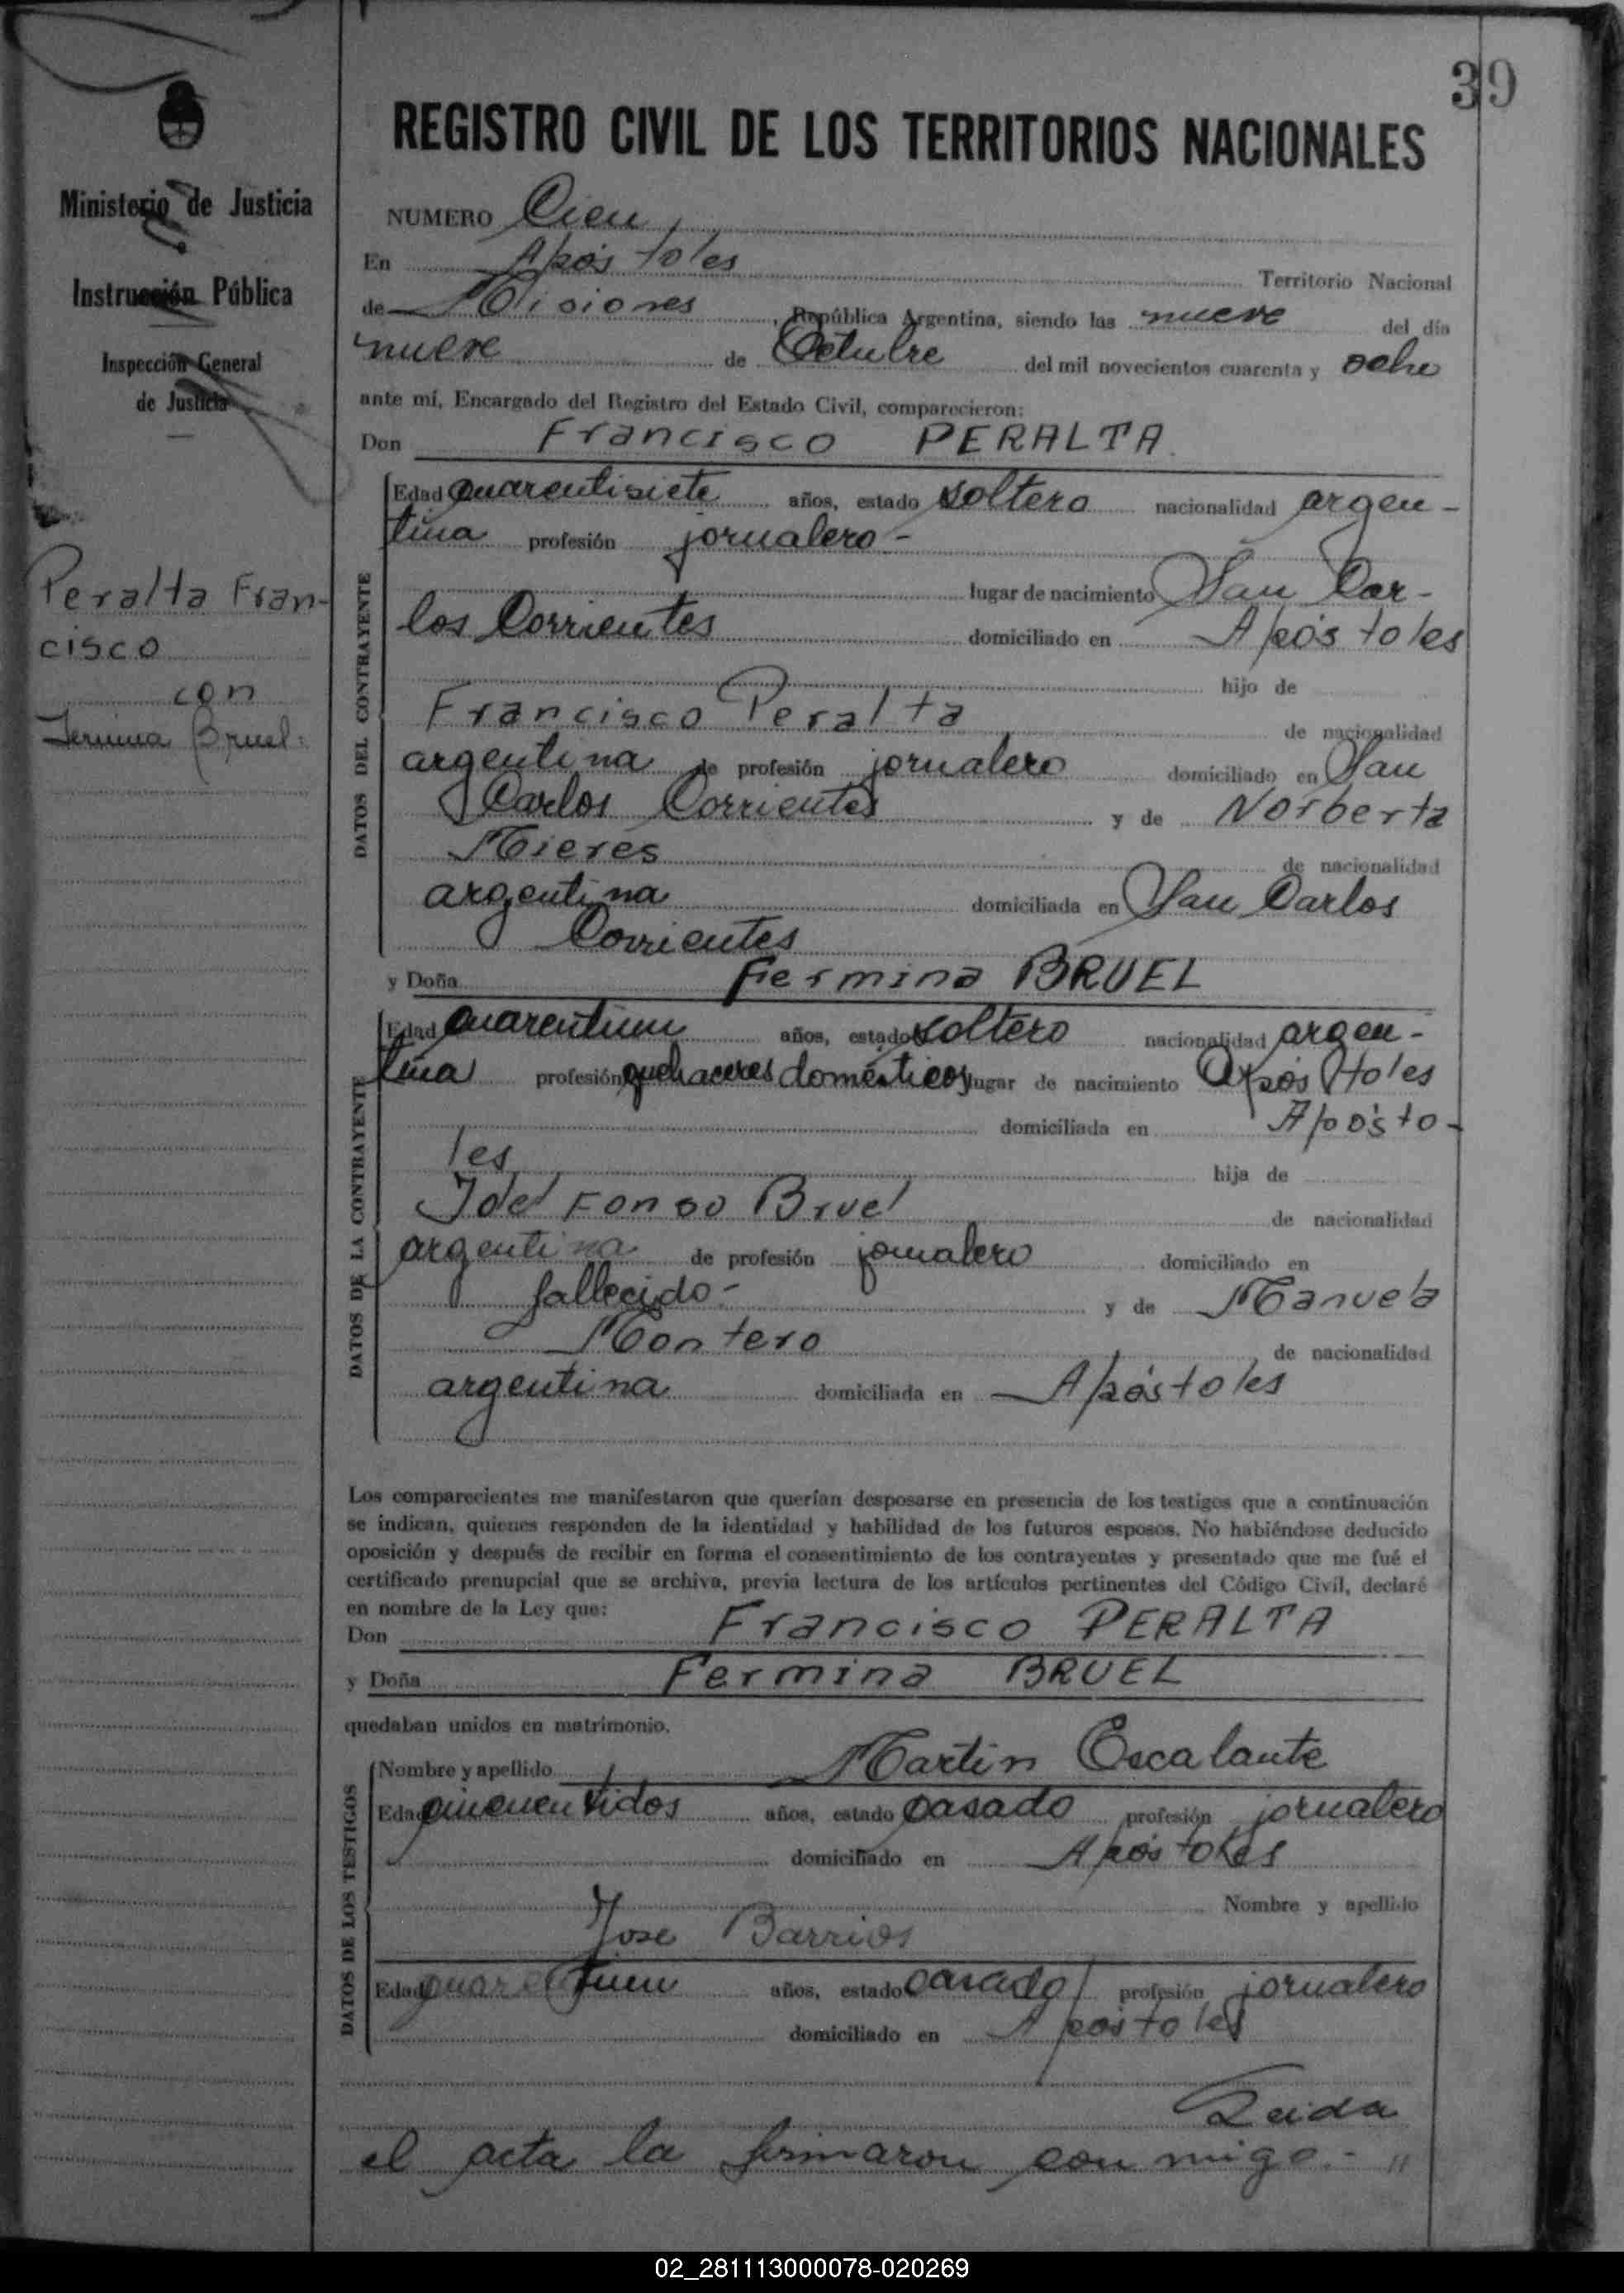 39
REGISTRO CIVIL DE LOS TERRITORIOS NACIONALES
Ministerio de Justicia
Instrucción Pública
Inspección General
de Justicia
Peralta Fran-
cisco
con
Fermina Bruel.
NUMERO Cien
En Apóstoles Territorio Nacional
de Misiones, República Argentina, siendo las nueve del día
nueve de Octubre del mil novecientos cuarenta y ocho
ante mí, Encargado del Registro del Estado Civil, comparecieron:
Don Francisco PERALTA
DATOS DEL CONTRAYENTE
Edad cuarentisiete años, estado soltero nacionalidad argen-
tina profesión jornalero-
lugar de nacimiento San Car-
los Corrientes domiciliado en Apóstoles
hijo de
Francisco Peralta de nacionalidad
argentina de profesión jornalero domiciliado en San
Carlos Corrientes y de Norberta
Mieres de nacionalidad
argentina domiciliada en San Carlos
Corrientes
y Doña Fermina BRUEL
DATOS DE LA CONTRAYENTE
Edad cuarentiun años, estado soltero nacionalidad argen-
tina profesión quehaceres domésticos lugar de nacimiento Apóstoles
domiciliada en Apósto-
les hija de
Idelfonso Bruel de nacionalidad
argentina de profesión jornalero domiciliado en
fallecido- y de Manuela
Montero de nacionalidad
argentina domiciliada en Apóstoles
Los comparecientes me manifestaron que querían desposarse en presencia de los testigos que a continuación
se indican, quienes responden de la identidad y habilidad de los futuros esposos. No habiéndose deducido
oposición y después de recibir en forma el consentimiento de los contrayentes y presentado que me fué el
certificado prenupcial que se archiva, previa lectura de los artículos pertinentes del Código Civil, declaré
en nombre de la Ley que:
Don Francisco PERALTA
y Doña Fermina BRUEL
quedaban unidos en matrimonio.
DATOS DE LOS TESTIGOS
Nombre y apellido Martin Escalante
Edad cincuentidos años, estado casado profesión jornalero
domiciliado en Apóstoles
Nombre y apellido
Jose Barrios
Edad cuarentiun años, estado casado profesión jornalero
domiciliado en Apóstoles
Leida
el acta la firmaron con migo.- "
02_281113000078-020269